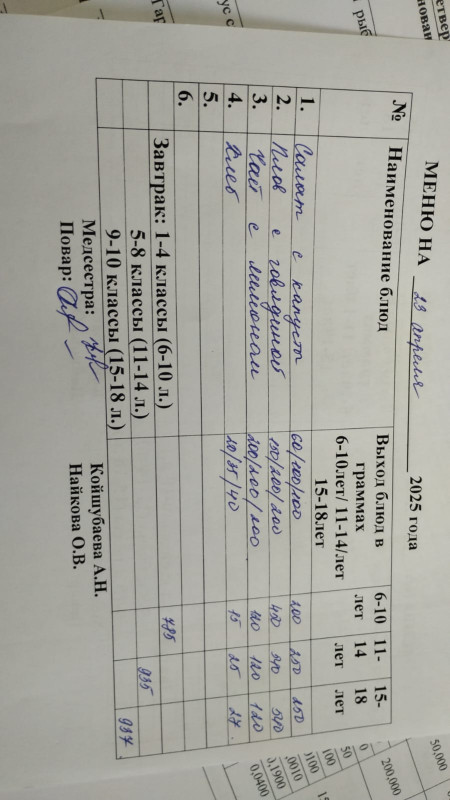 МЕНЮ НА 23 апреля 2025 года
№ Наименование блюд Выход блюд в граммах 6-10лет/ 11-14/лет 15-18лет 6-10 лет 11-14 лет 15-18 лет
1. Салат с капусты 60/100/100 200 250 250
2. Плов с говядиной 150/200/200 400 540 540
3. Чай с лимоном 200/200/200 120 120 120
4. Хлеб 20/35/40 15 25 27
5.
6.
Завтрак: 1-4 классы (6-10 л.) 735
5-8 классы (11-14 л.) 935
9-10 классы (15-18 л.) 937
Медсестра: Койшубаева А.Н.
Повар: Найкова О.В.
50,000
200,000
0,1900
0,0400